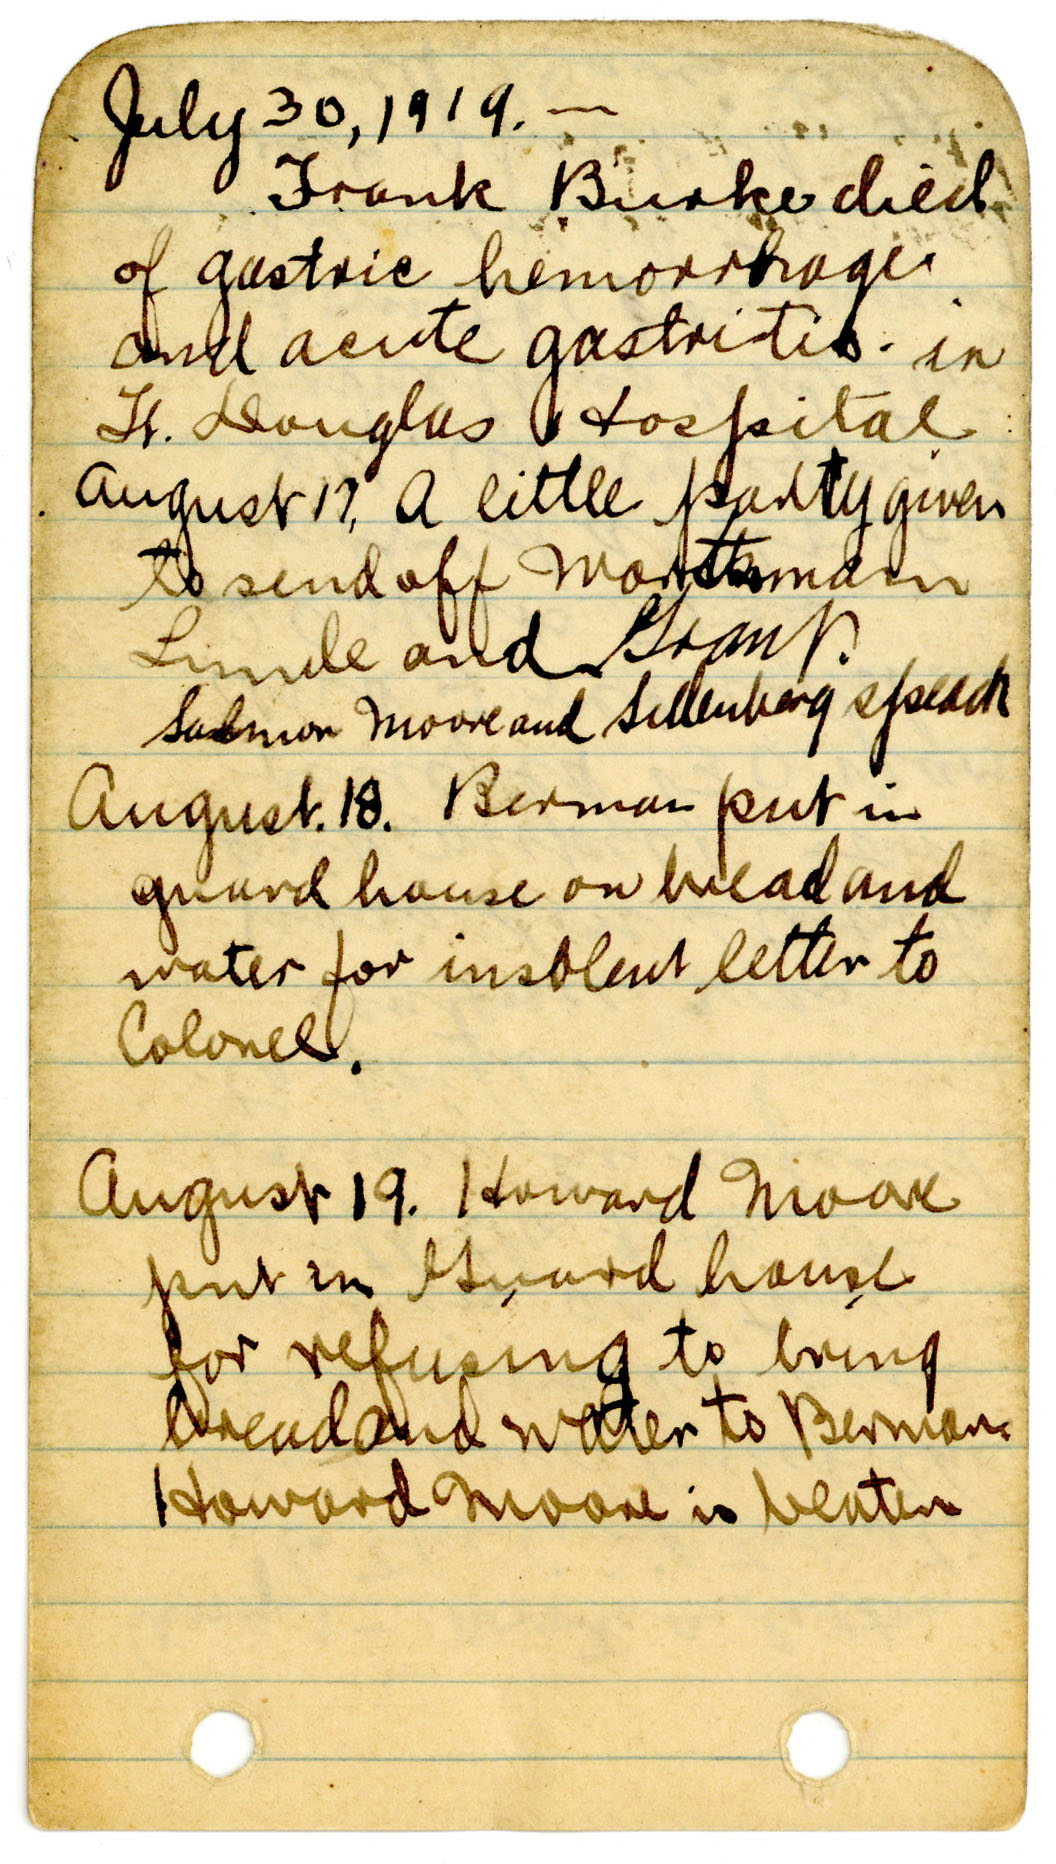 July 30, 1919. —
Frank Burke died
of gastric hemorrhage
and acute gastritis. in
Ft. Douglas Hospital
August 17, A little party given
to send off
Lunde and Grant.
Salmon Moore and speack
August. 18. Berman put in
guard house on bread and
water for insolent letter to
Colonel.
August 19. Howard Moore
put in Guard house
for refusing to bring
bread and water to Berman.
Howard Moore is beaten